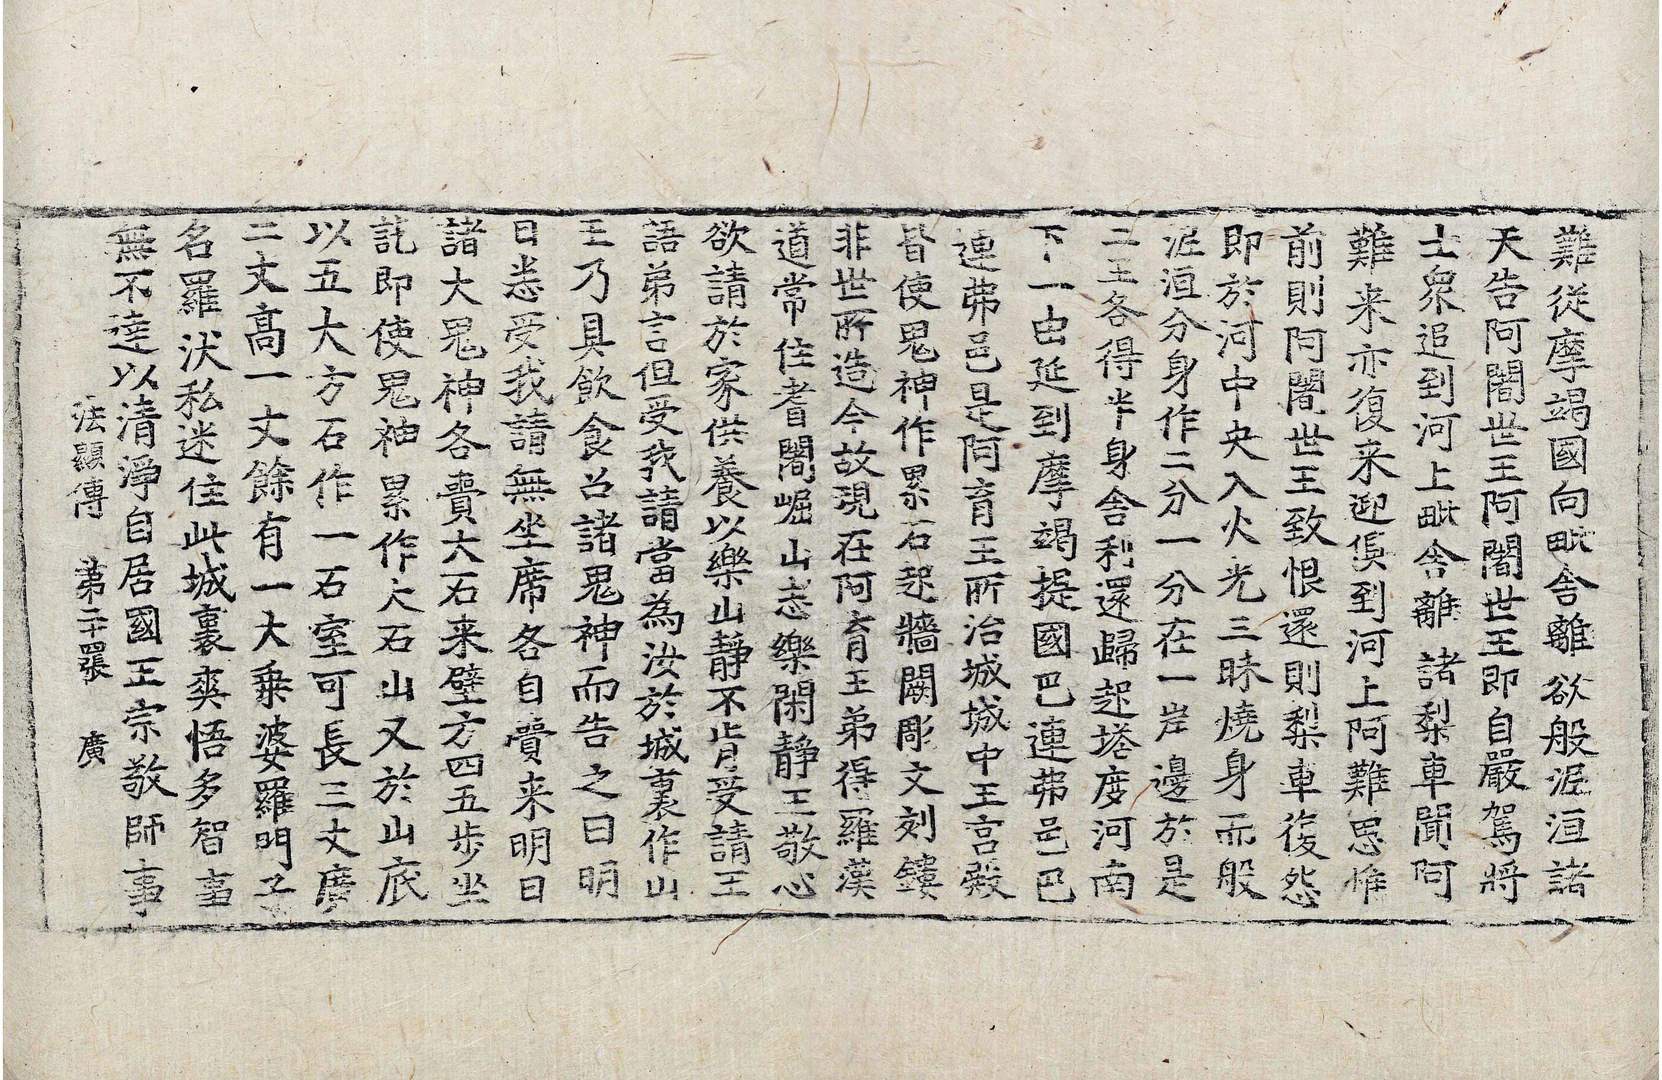 難從摩竭國向毗舍離欲般泥洹諸
天告阿闍世王阿闍世王即自嚴駕將
士衆追到河上毗舍離諸梨車聞阿
難来亦復来迎俱到河上阿難思惟
前則阿闍世王致恨還則梨車復怨
即於河中央入火光三昧燒身而般
泥洹分身作二分一分在一岸邊於是
二王各得半身舍利還歸起塔度河南
下一由延到摩竭提國巴連弗邑巴
連弗邑是阿育王所治城城中王宮殿
皆使鬼神作累石起牆闕彫文刻鏤
非世所造今故現在阿育王弟得羅漢
道常住耆闍崛山志樂閑靜王敬心
欲請於家供養以樂山靜不肯受請王
語弟言但受我請當為汝於城裏作山
王乃具飲食召諸鬼神而告之曰明
日悉受我請無坐席各自賷来明日
諸大鬼神各賷大石来壁方四五步坐
訖即使鬼神累作大石山又於山底
以五大方石作一石室可長三丈廣
二丈高一丈餘有一大乗婆羅門子
名羅汱私迷住此城裏爽悟多智事
無不達以清淨自居國王宗敬師事
法顯傳 第二十四張 廣